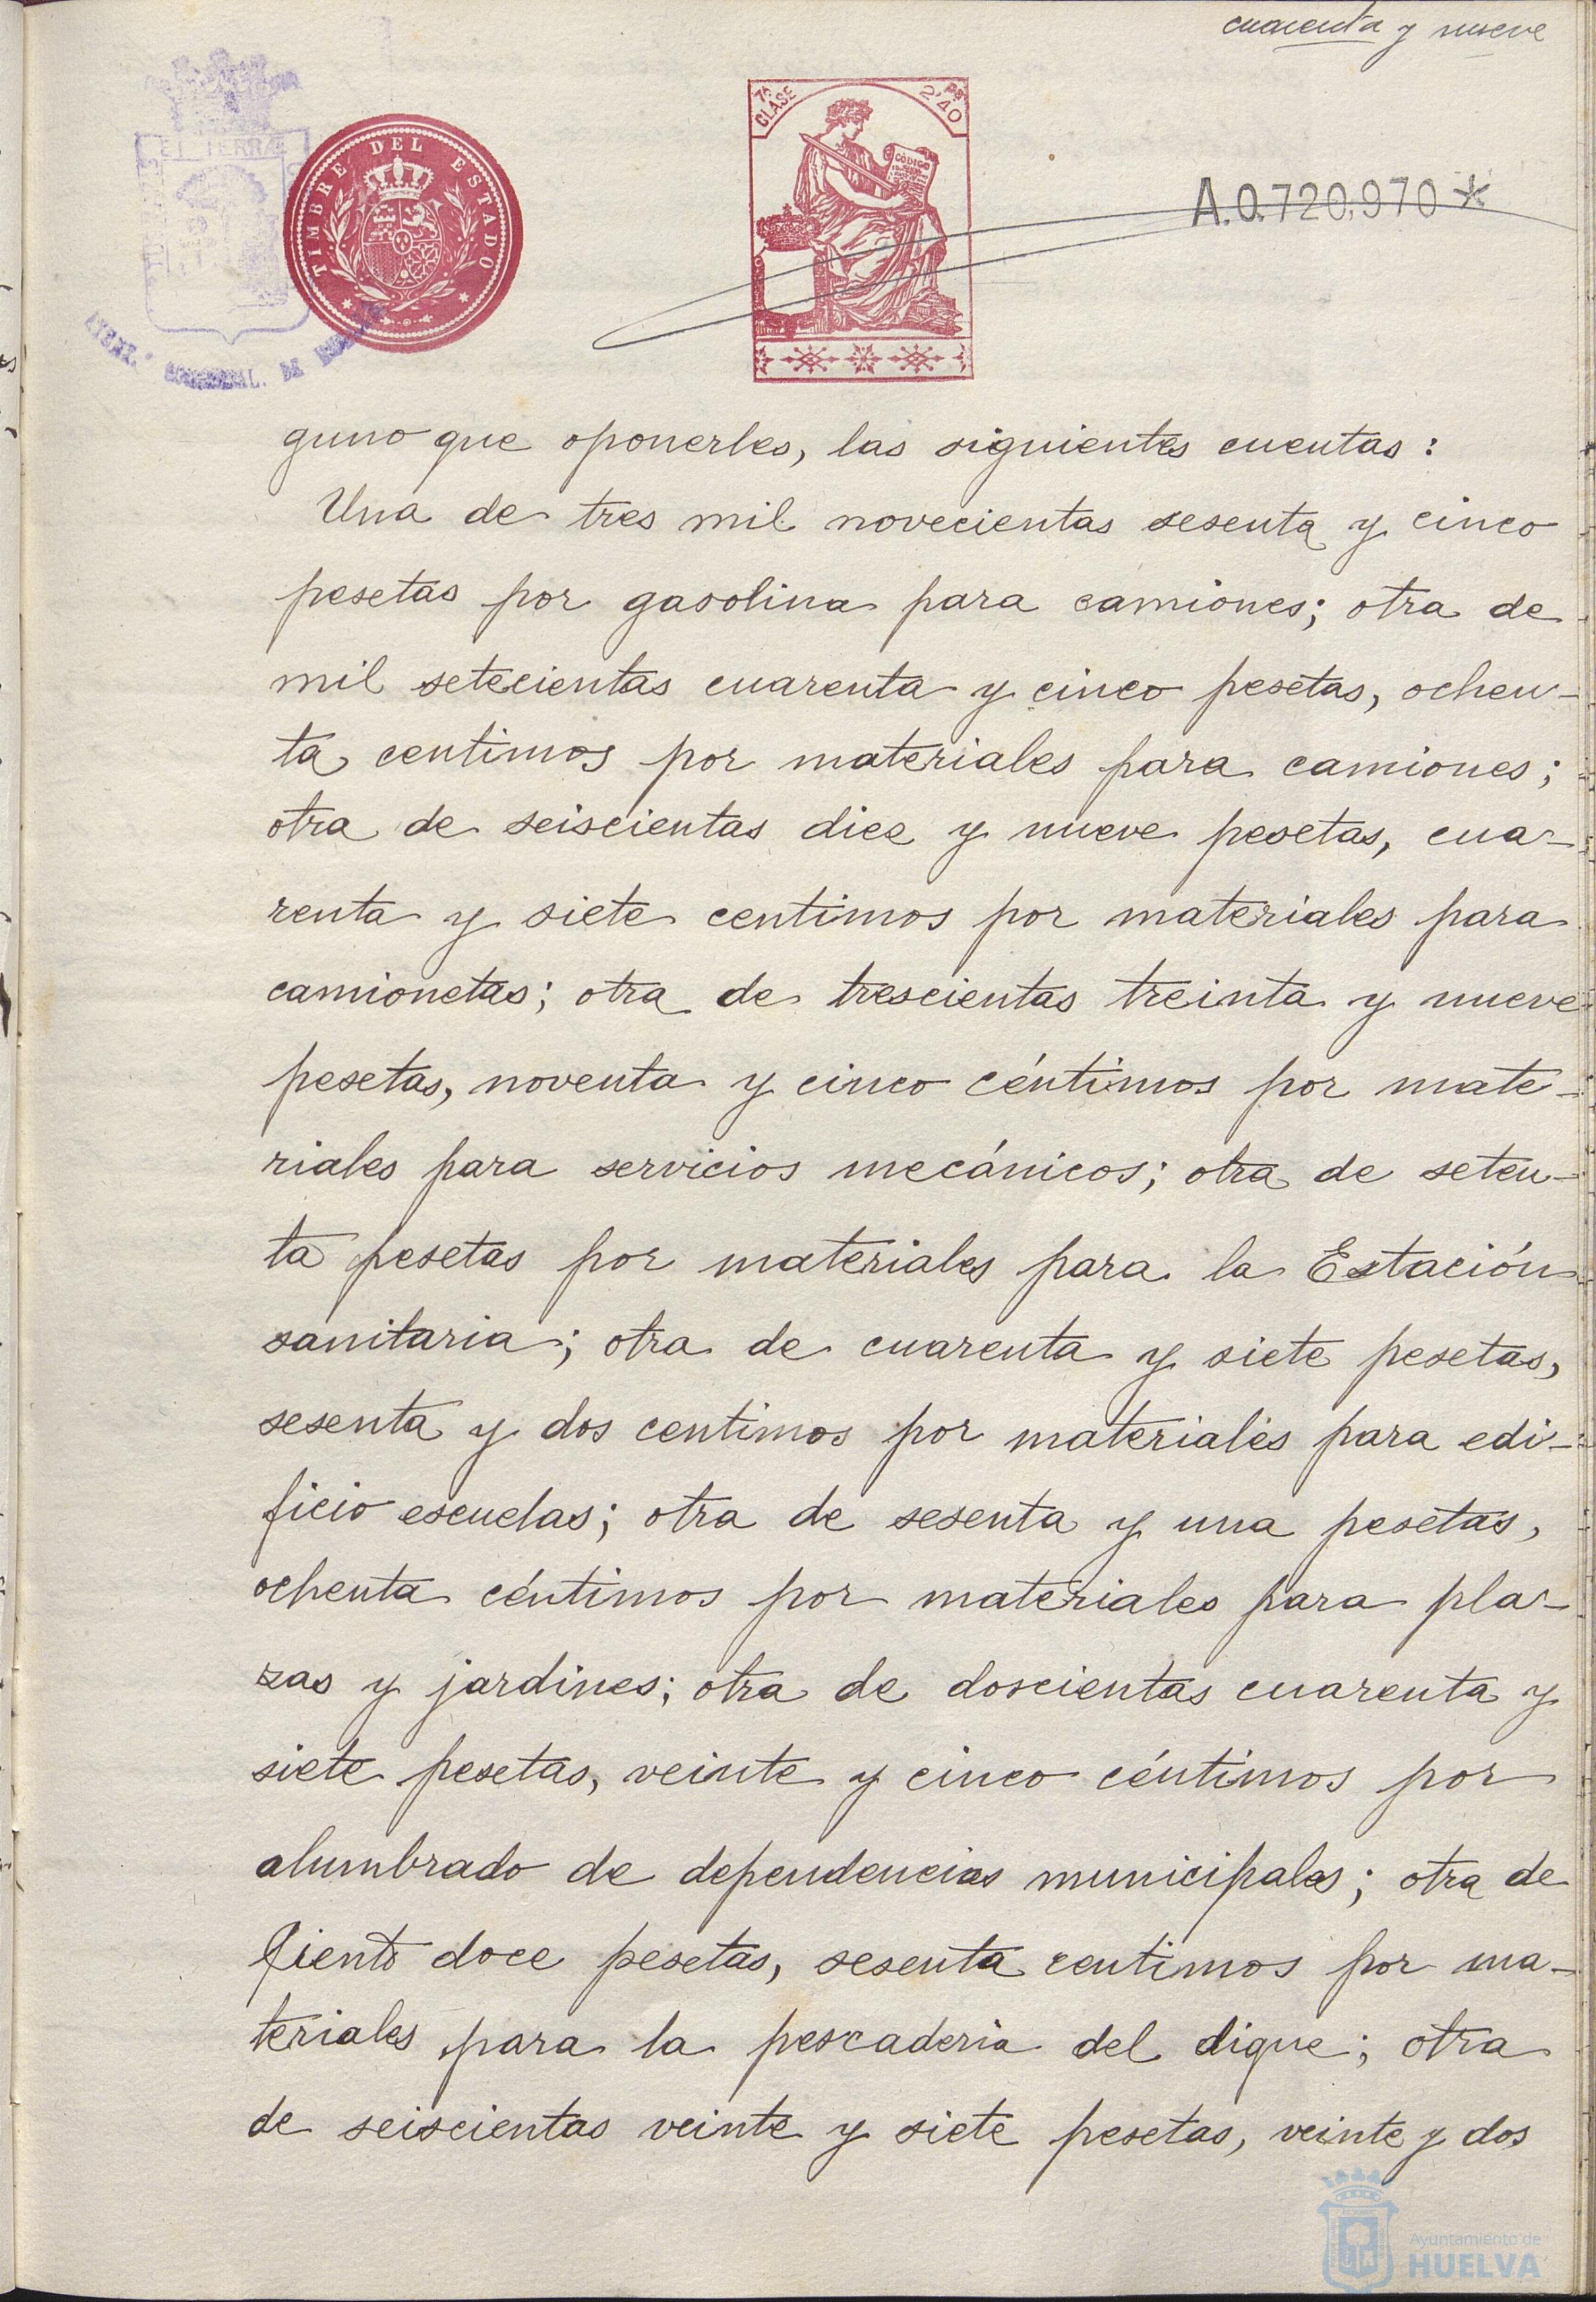 cuarenta y nueve
ET TERRÆ
TIMBRE DEL ESTADO
7ª CLASE
2'40 ps
CÓDIGO
A.0.720.970*
DE
guno que oponerles, las siguientes cuentas:
Una de tres mil novecientas sesenta y cinco
pesetas por gasolina para camiones; otra de
mil setecientas cuarenta y cinco pesetas, ochen-
ta centimos por materiales para camiones;
otra de seiscientas diez y nueve pesetas, cua-
renta y siete centimos por materiales para
camionetas; otra de trescientas treinta y nueve
pesetas, noventa y cinco céntimos por mate-
riales para servicios mecánicos; otra de seten-
ta pesetas por materiales para la Estación
sanitaria; otra de cuarenta y siete pesetas,
sesenta y dos centimos por materiales para edi-
ficio escuelas; otra de sesenta y una pesetas,
ochenta céntimos por materiales para pla-
zas y jardines; otra de doscientas cuarenta y
siete pesetas, veinte y cinco céntimos por
alumbrado de dependencias municipales; otra de
ciento doce pesetas, sesenta centimos por ma-
teriales para la pescaderia del dique; otra
de seiscientas veinte y siete pesetas, veinte y dos
Ayuntamiento de
HUELVA